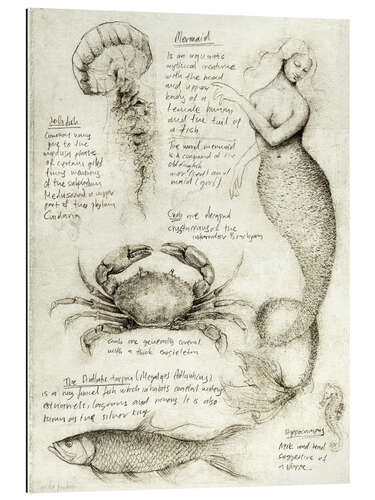 Mermaid
Is an aquatic
mythical creature
with the head
and upper
body of a
female human
and the tail of
a fish
The word mermaid
is a compound of the
old english
mere (sea) and
maid (girl)
Jellyfish
Common name
given to the
medusa phase
of certain
of the subphylum
Medusozoa a major
part of the phylum
Cnidaria
Crabs are decapod
crustaceans of the
infraorder Brachyura
crabs are generally covered
with a thick exoskeleton
The Atlantic tarpon (Megalops Atlanticus)
is a ray finned fish which inhabits coastal waters
estuaries, lagoons and rivers. It is also
known as the silver king
Hippocampus
Neck and head
suggestive of
a horse